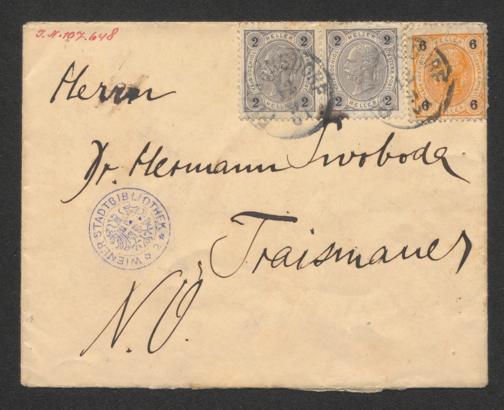 J.N. 107.648
2 HELLER 2
2 2
2 HELLER 2
2 2
6 6
6 6
Herrn
Dr. Hermann Swoboda
WIENER STADTBIBLIOTHEK
Traismauer
N.Ö.